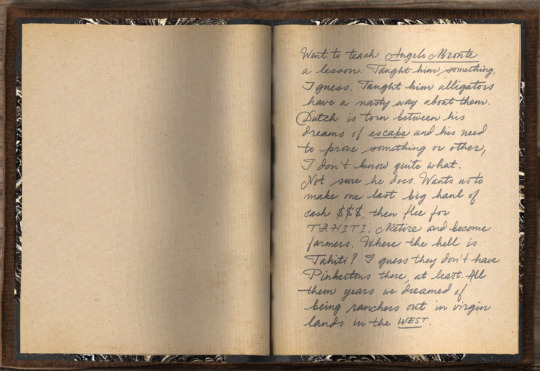 Went to teach Angelo Bronte
a lesson. Taught him something,
I guess. Taught him alligators
have a nasty way about them.
Dutch is torn between his
dreams of escape and his need
to prove something or other,
I don't know quite what.
Not sure he does. Wants us to
make one last big haul of
cash $$$, then flee for
TAHITI. Retire and become
farmers. Where the hell is
Tahiti? I guess they don't have
Pinkertons there, at least. All
them years we dreamed of
being ranchers out in virgin
lands in the WEST.